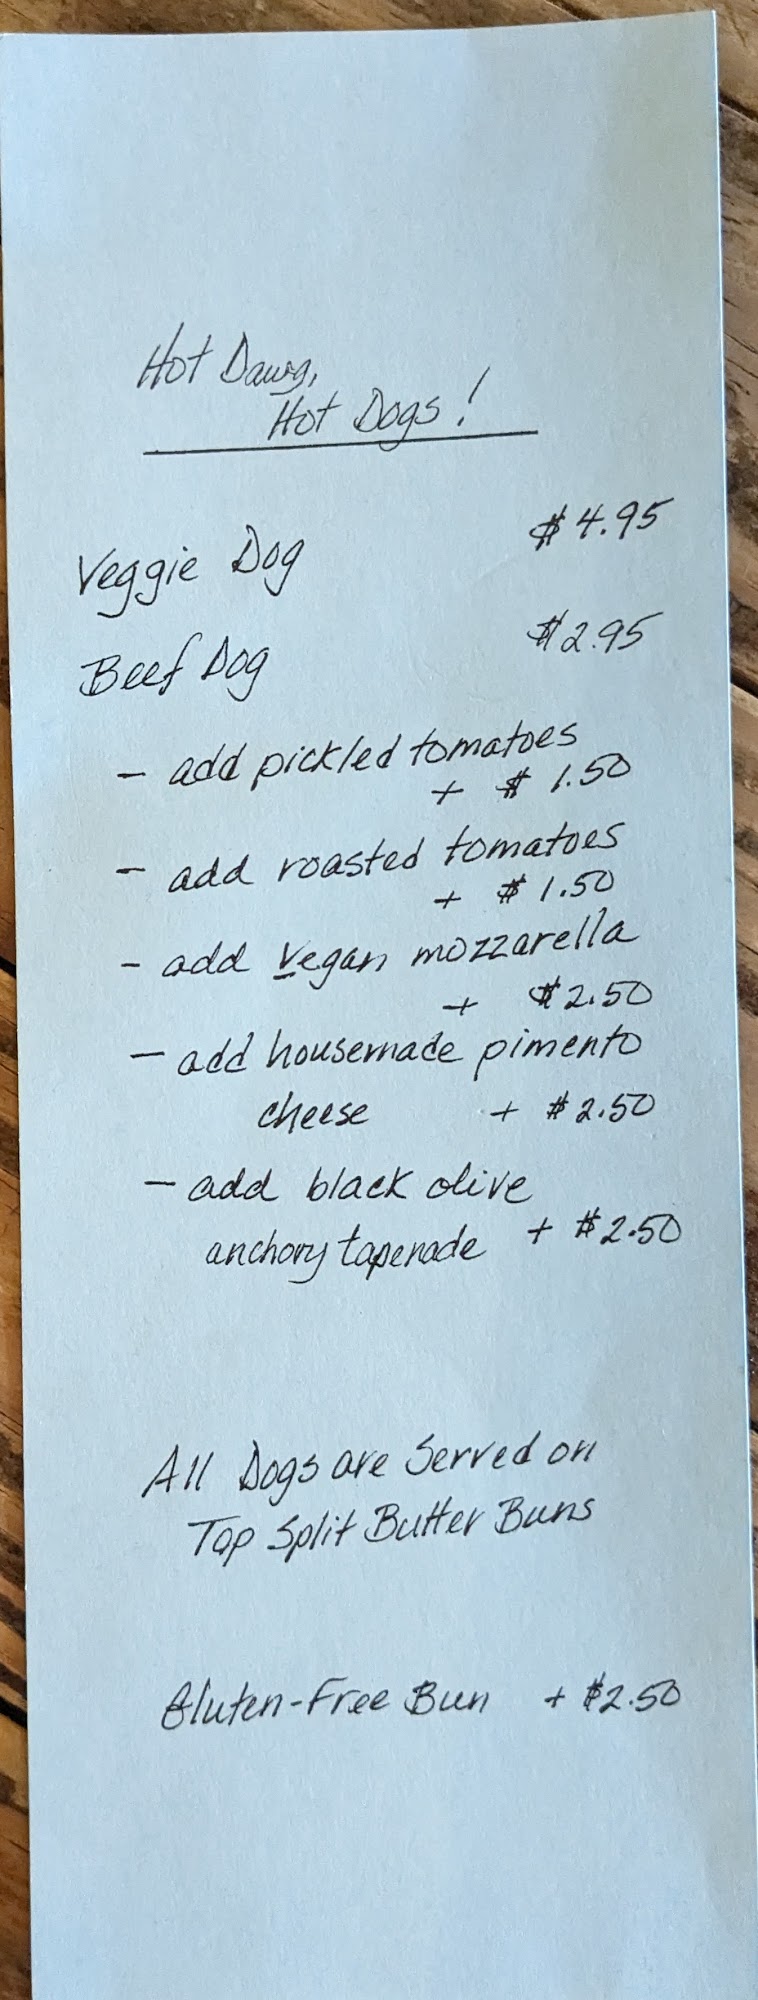 Hot Dawg,
Hot Dogs!
Veggie Dog $4.95
Beef Dog $2.95
- add pickled tomatoes
+ $1.50
- add roasted tomatoes
+ $1.50
- add vegan mozzarella
+ $2.50
- add housemade pimento
cheese + $2.50
- add black olive
anchovy tapenade + $2.50
All Dogs are Served on
Top Split Butter Buns
Gluten-Free Bun + $2.50